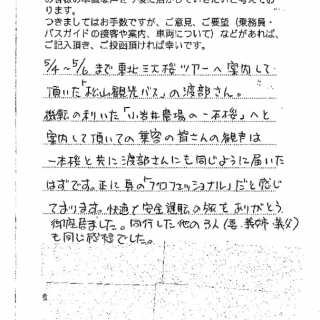 ります。
つきましてはお手数ですが、ご意見、ご要望（乗務員・
バスガイドの接客や案内、車両について）などがあれば、
ご記入頂き、ご投函頂ければ幸いです。
5/4〜5/6 まで東北三大桜ツアーへ案内して
頂いた「松山観光バス」の渡部さん。
機転の利いた「小岩井農場の一本桜」へと
案内して頂いての乗客の皆さんの歓声は
一本桜と共に渡部さんにも同じように届いた
はずです。正に真の「プロフェッショナル」だと感じ
ております。快適で安全運転の旅をありがとう
御座居ました。同行した他の3人(妻・義姉・義父)
も同じ感想でした。